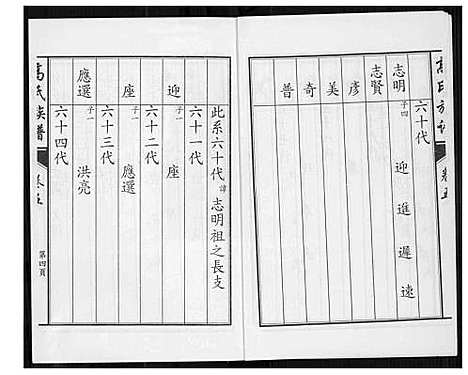 高氏族譜
卷五
六十代
志明 子四 迎 進 遲 速
志賢
彥
美
奇
普
此系六十代諱志明祖之長支
六十一代
迎 子一 座
六十二代
座 子一 應選
六十三代
應選 子一 洪亮
六十四代
高氏族譜
卷五
第四頁